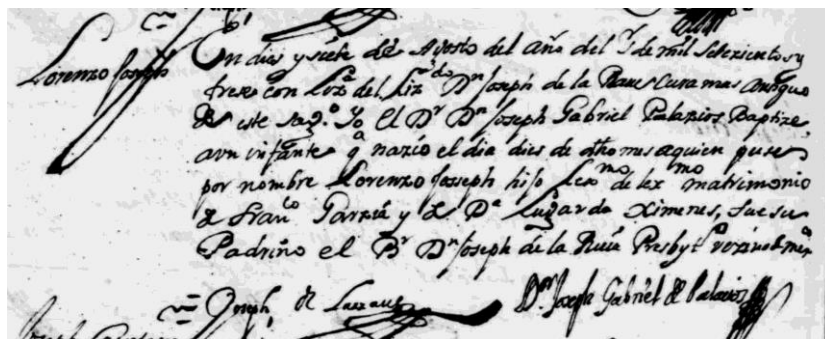 Lorenzo Joseph
En dies y siete de Agosto del Año del S.r de mil Setezientos y
treze con Liz.a del Liz.do D.n Joseph de la Llaue Cura mas antiguo
de este Sag.o Yo el D.r D.n Joseph Gabriel Palazios Baptize,
a vn infante q nazio el dia dies de dho mes a quien puse
por nombre Lorenzo Joseph hijo lex.mo de lex.mo matrimonio
de Fran.co Garzia y de D.a Lugarda Ximenes, fue su
Padrino el B.r D.n Joseph de la Presbyt.o vezino de
Joseph de Lazzaus D.r Joseph Gabriel de Palazios